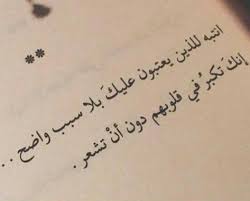 **
انتبه للذين يعتبون عليكَ بلا سبب واضح ..
إنكَ تَكبرُ في قلوبهم دون أنْ تشعر .